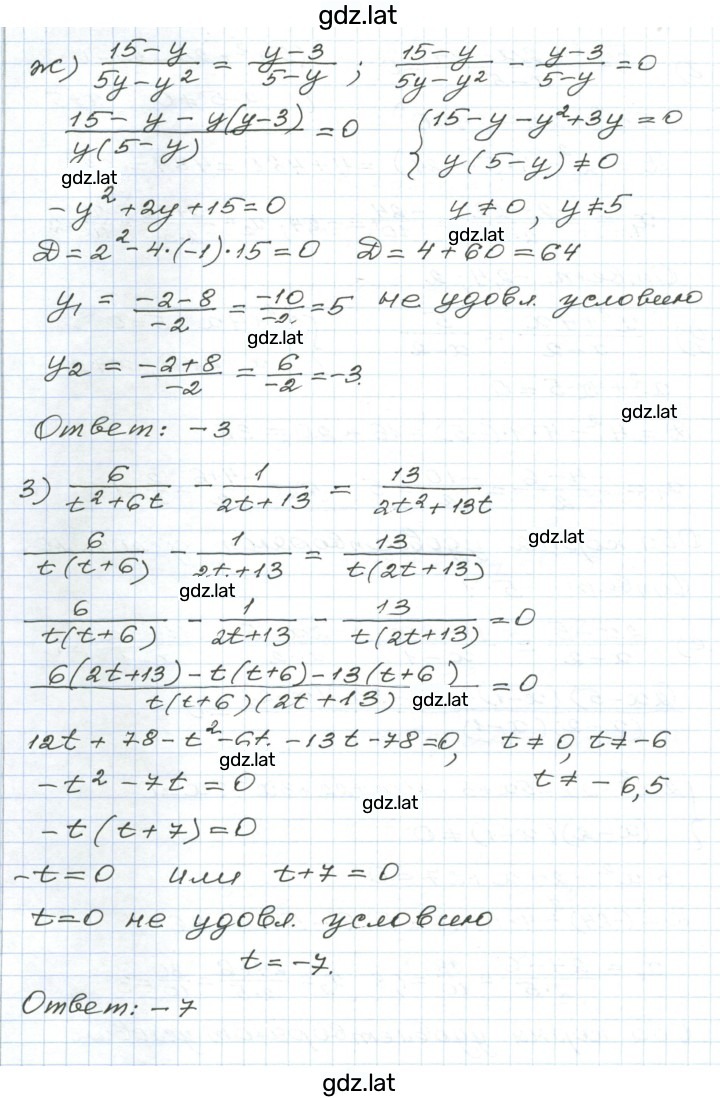 gdz.lat
ж) (15-y)/(5y-y²) = (y-3)/(5-y) ; (15-y)/(5y-y²) - (y-3)/(5-y) = 0
(15-y-y(y-3))/(y(5-y)) = 0 { 15-y-y²+3y=0
y(5-y)≠0
gdz.lat
-y²+2y+15=0 y≠0, y≠5
gdz.lat
Д=2²-4·(-1)·15=0 Д=4+60=64
y₁ = (-2-8)/(-2) = (-10)/(-2) = 5 не удовл. условию
gdz.lat
y₂ = (-2+8)/(-2) = 6/(-2) = -3.
gdz.lat
Ответ: -3
з) 6/(t²+6t) - 1/(2t+13) = 13/(2t²+13t)
gdz.lat
6/(t(t+6)) - 1/(2t+13) = 13/(t(2t+13))
gdz.lat
6/(t(t+6)) - 1/(2t+13) - 13/(t(2t+13)) = 0
(6(2t+13)-t(t+6)-13(t+6))/(t(t+6)(2t+13)) = 0
gdz.lat
12t+78-t²-6t-13t-78=0, t≠0, t≠-6
gdz.lat
-t²-7t=0 t≠-6,5
gdz.lat
-t(t+7)=0
-t=0 или t+7=0
t=0 не удовл. условию
t=-7.
Ответ: -7
gdz.lat